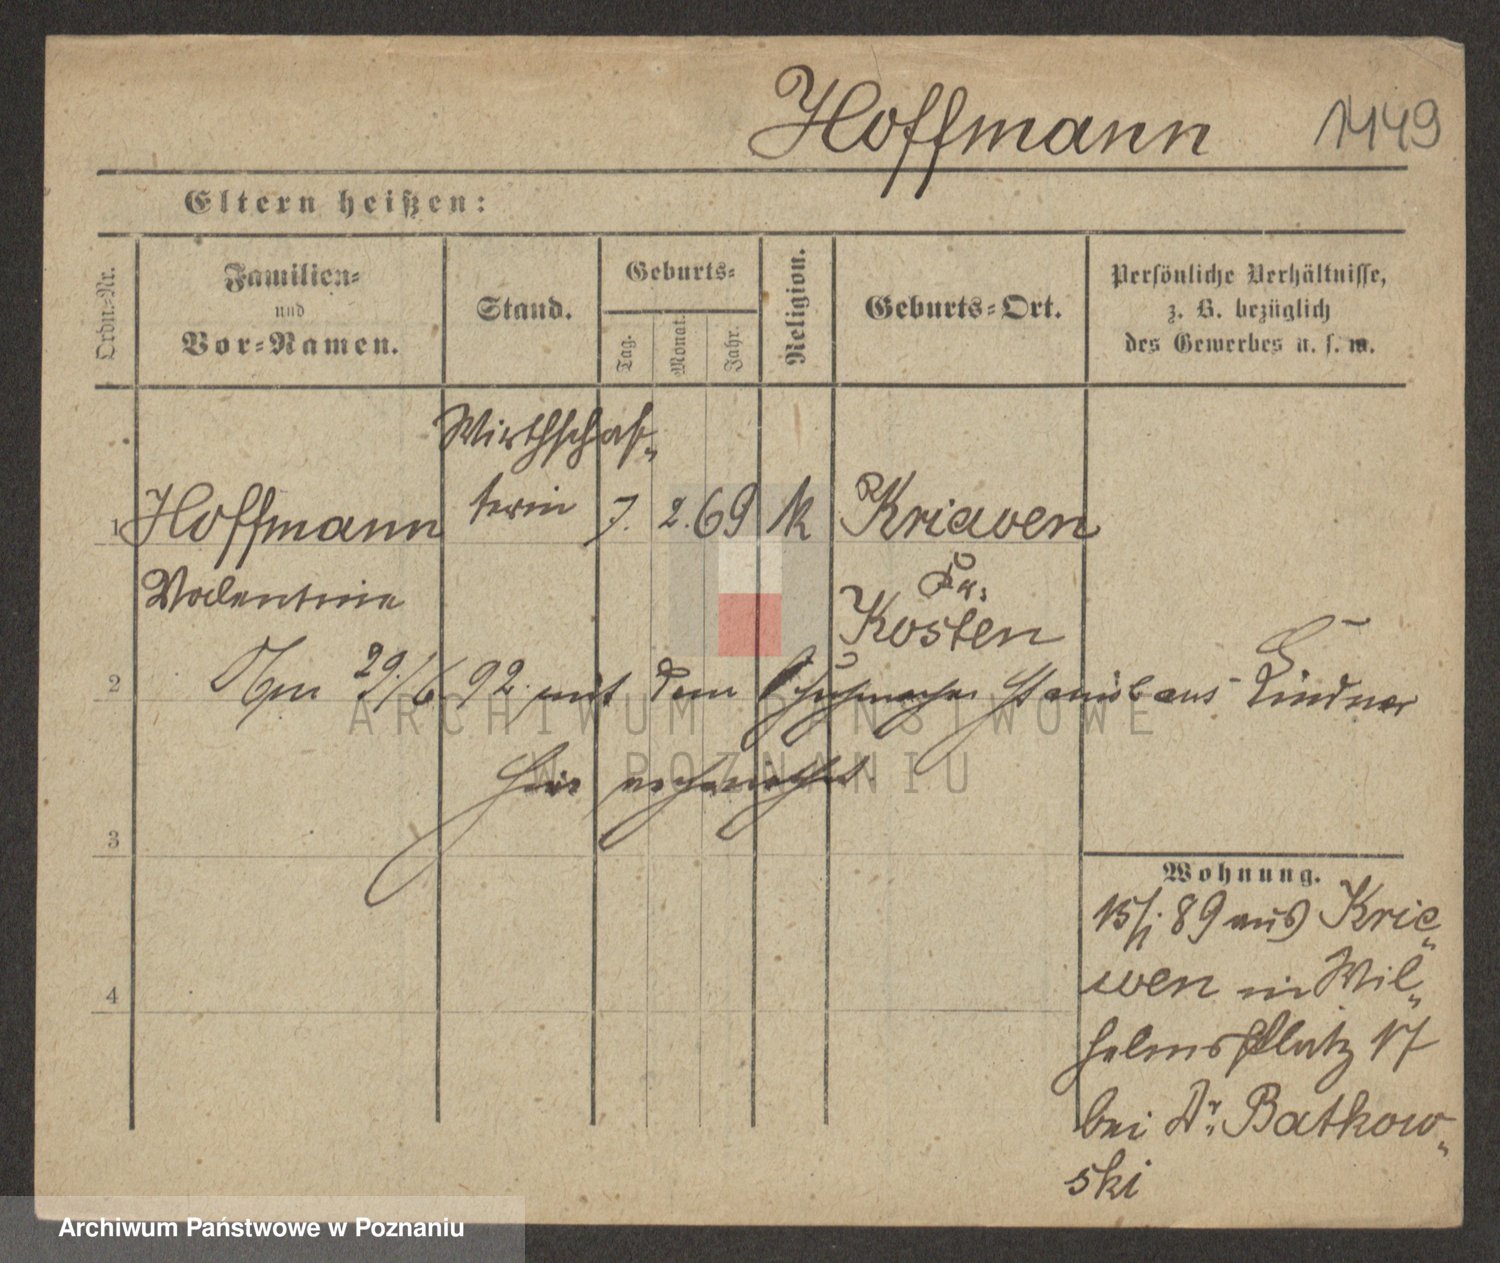 Hoffmann 1449
Eltern heißen:
Ordn.-Nr.
Familien-
und
Vor-Namen.
Stand.
Geburts-
Tag.
Monat.
Jahr.
Religion.
Geburts-Ort.
Persönliche Verhältnisse,
z. B. bezüglich
des Gewerbes u. s. w.
Wirthschaf-
1 Hoffmann terin 7. 2. 69 k Kriewen
Valentine Kr.
Kosten
2 Am 29./6. 92. mit dem Schuhmacher Stanislaus Lindner
hier verheirathet.
3
4
Wohnung.
15/1. 89 aus Krie-
wen in Wil-
helmsplatz 17
bei Dr. Batkow-
ski
ARCHIWUM PAŃSTWOWE
W POZNANIU
Archiwum Państwowe w Poznaniu